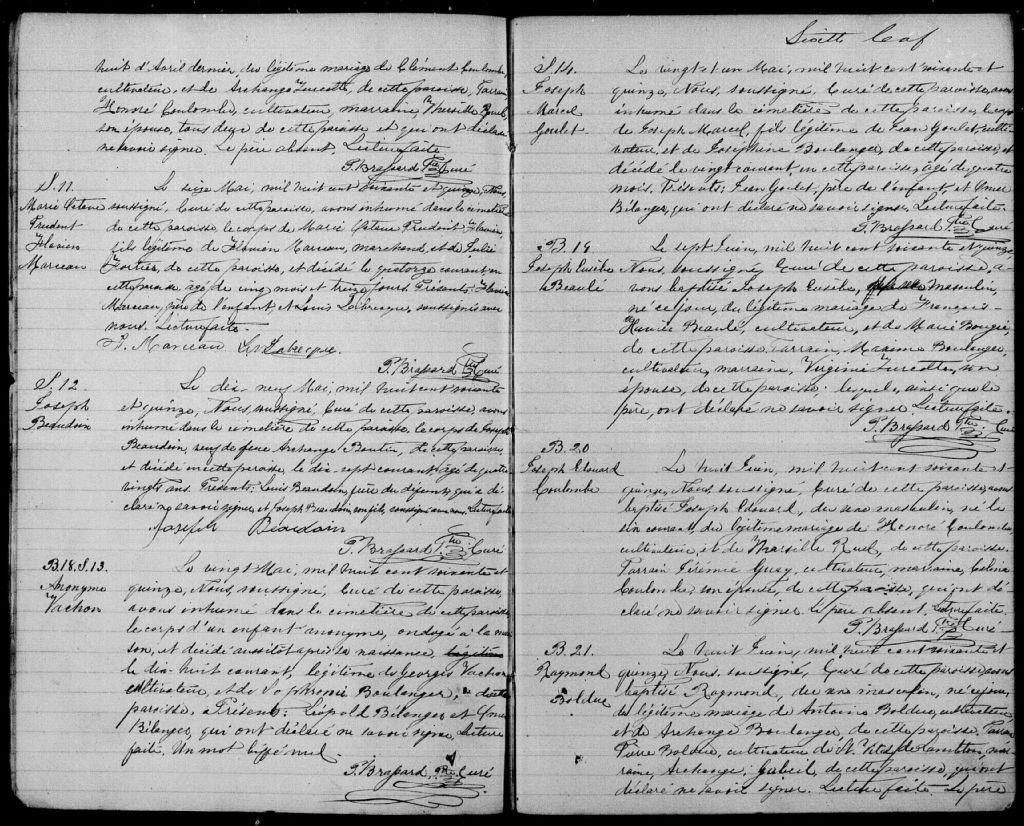 huit d'Avril dernier, du légitime mariage de Clément Coulombe,
cultivateur, et de Archange Turcotte, de cette paroisse, Parrain
Honoré Coulombe, cultivateur, marraine, Marseille Ruel,
son épouse, tous deux de cette paroisse et qui ont déclaré
ne savoir signer. Le père absent. Lecture faite
P. Brassard Ptre Curé
S. 11.
Marie Octave
Prudent
Flavien
Marceau
Le seize Mai, mil huit cent soixante et quinze, Nous
soussigné, Curé de cette paroisse, avons inhumé dans le cimetière
de cette paroisse le corps de Marie Octave Prudent Flavien
fils légitime de Flavien Marceau, marchand, et de Julie
Fortier, de cette paroisse, et décédé le quatorze courant en
cette paroisse âgé de cinq mois et treize jours. Présents: Flavien
Marceau, père de l'enfant, et Louis Labrecque, soussignés avec
nous. Lecture faite.
F. Marceau Ls Labrecque.
P. Brassard Ptre Curé
S. 12
Joseph
Beaudoin
Le dix-neuf Mai, mil huit cent soixante
et quinze, Nous, soussigné, Curé de cette paroisse, avons
inhumé dans le cimetière de cette paroisse, le corps de Joseph
Beaudoin, veuf de feue Archange Boutin, de cette paroisse,
et décédé en cette paroisse, le dix-sept courant, âgé de quatre
vingts ans. Présents: Louis Beaudoin, frère du défunt, qui a dé-
claré ne savoir signer, et Joseph Beaudoin, son fils, soussigné avec nous. Lecture faite
Joseph Beaudoin
P. Brassard Ptre Curé
B.18. S.13.
Anonyme
Vachon
Le vingt Mai, mil huit cent soixante et
quinze, Nous, soussigné, Curé de cette paroisse,
avons inhumé dans le cimetière de cette paroisse
le corps d'un enfant anonyme, ondoyé à la mai-
son, et décédé aussitôt après sa naissance,
le dix-huit courant, légitime de Georges Vachon
cultivateur, et de Sophronie Boulanger, de cette
paroisse. Présents: Léopold Bélanger et
Bélanger, qui ont déclaré ne savoir signer. Lecture
faite. Un mot biffé nul.
P. Brassard, Ptre Curé
Sixième Caf
S. 14.
Joseph
Marcel
Goulet
Le vingt et un Mai, mil huit cent soixante et
quinze, Nous, soussigné, Curé de cette paroisse, avons
inhumé dans le cimetière de cette paroisse, le corps
de Joseph Marcel, fils légitime de Jean Goulet, culti-
vateur, et de Joséphine Boulanger, de cette paroisse, et
décédé le vingt courant, en cette paroisse, âgé de quatre
mois. Présents: Jean Goulet, père de l'enfant, et
Bélanger, qui ont déclaré ne savoir signer. Lecture faite.
P. Brassard Ptre Curé
B. 19
Joseph Eusèbe
Beaulé
Le sept Juin, mil huit cent soixante et quinze,
Nous, soussigné, Curé de cette paroisse, a-
vons baptisé Joseph Eusèbe, masculin,
né ce jour, du légitime mariage de François-
Xavier Beaulé, cultivateur, et de Marie Bougie,
de cette paroisse. Parrain, Maxime Boulanger,
cultivateur, marraine, Virginie Turcotte, son
épouse, de cette paroisse; lesquels, ainsi que le
père, ont déclaré ne savoir signer. Lecture faite.
P. Brassard Ptre. Curé
B. 20
Joseph Edouard
Coulombe
Le huit Juin, mil huit cent soixante et
quinze, Nous, soussigné, Curé de cette paroisse, avons
baptisé Joseph Edouard, du sexe masculin, né le
six courant, du légitime mariage de Honoré Coulombe,
cultivateur, et de Marseille Ruel, de cette paroisse.
Parrain Jérémie Guay, cultivateur, marraine, Célina
Coulombe, son épouse, de cette paroisse, qui ont dé-
claré ne savoir signer. Le père absent. Lecture faite.
P. Brassard Ptre Curé
B. 21.
Raymond
Bolduc
Le huit Juin, mil huit cent soixante et
quinze, Nous, soussigné, Curé de cette paroisse, avons
baptisé Raymond, du sexe masculin, né ce jour,
du légitime mariage de Antoine Bolduc, cultivateur,
et de Archange Boulanger, de cette paroisse, Parrain
Pierre Bolduc, cultivateur de St Vital de Lambton, mar-
raine, Archange, de cette paroisse, qui ont
déclaré ne savoir signer. Lecture faite. Le père